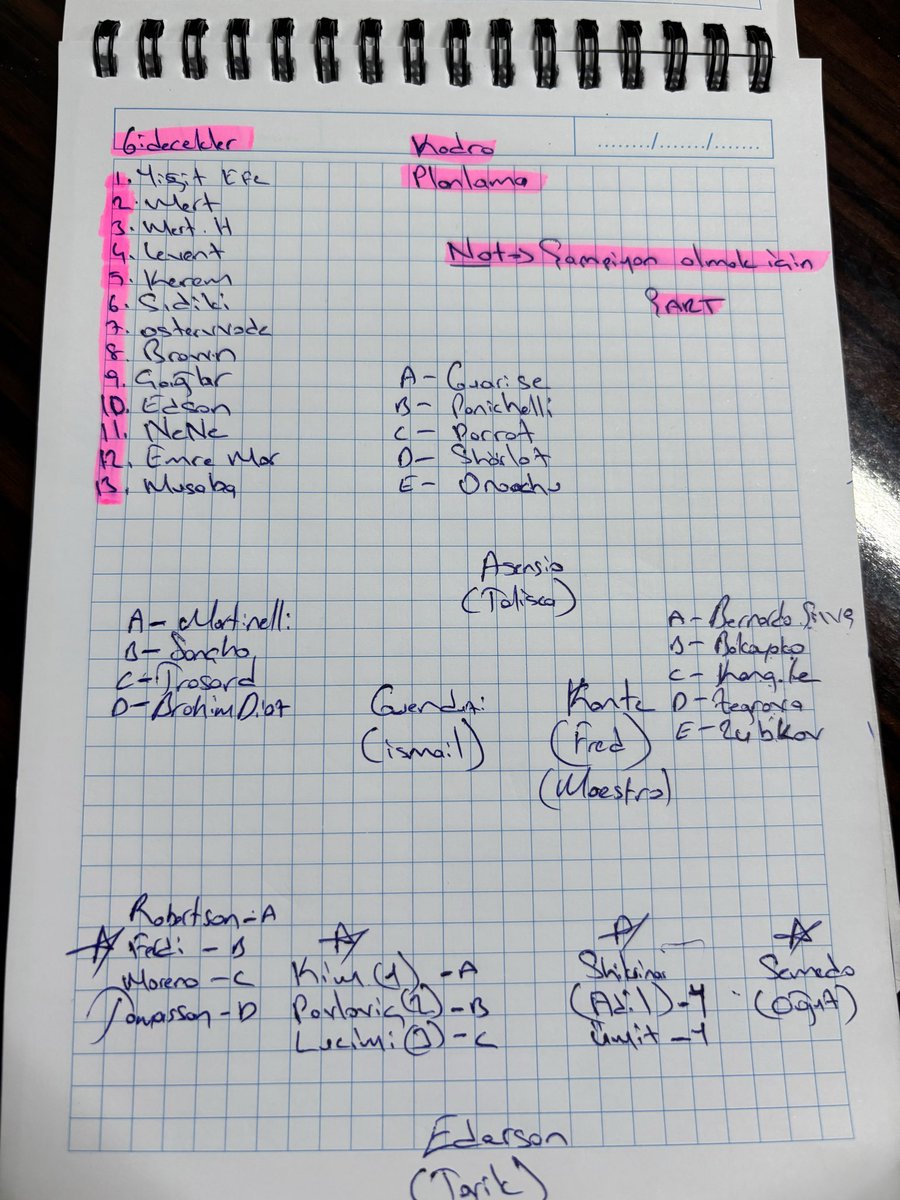 Gidecekler
Kadro
Planlama
Not → Şampiyon olmak için
ŞART
1. Yiğit Efe
2. Mert
3. Mert. H
4. Levent
5. Kerem
6. Sidiki
7. oosterwode
8. Brown
9. Çağlar
10. Edson
11. NeNe
12. Emre Mor
13. Musaba
A - Guarise
B - Panichelli
C - Parrot
D - Sharlot
E - Onoachu
Asensio
(Talisca)
A - Martinelli
B - Sancho
C - Trosard
D - Brahim Diaz
A - Bernardo Silva
B - Bakayoko
C - Kang.Le
D - Zegrova
E - Zubkov
Guenduzi
(ismail)
Kante
(Fred)
(Maestro)
Robertson - A
Ferdi - B
Moreno - C
- D
Kim (1) - A
Pavlovic (2) - B
Lucimi (3) - C
Shikrinar
(Adil) - 4
ümit - 4
Semedo
(Oğuz)
Ederson
(Tarik)